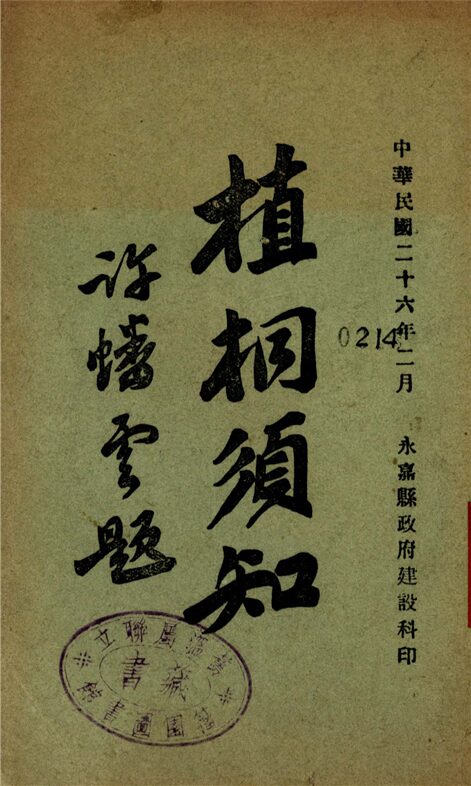 中華民國二十六年二月 永嘉縣政府建設科印
0214
植桐須知
許蟠雲題
舊溫屬聯立
籀園圖書館
藏書